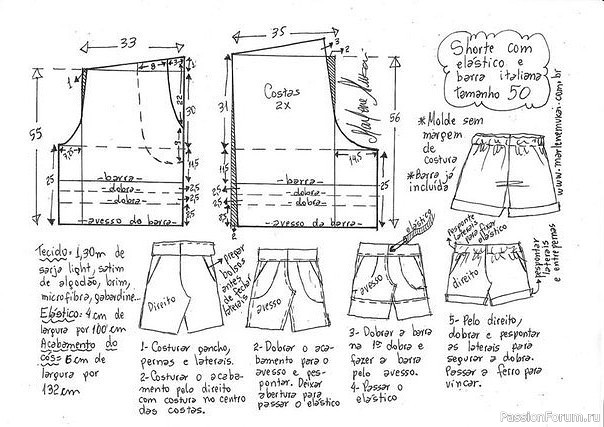 33
35
3
2
1
8
3
22
30
9
55
7,5
25
11,5
2,5
2,5
31
Costas
2X
56
14,5
11,5
25
25
2
- barra -
- dobra -
- dobra -
- avesso da barra -
- barra -
- dobra -
- dobra -
- avesso da barra -
Marlene Mukai
Shorte com
elástico e
barra italiana
tamanho 50
www.marlenemukai.com.br
* Molde sem
margem de
costura
* Barra já
incluída
Tecido = 1,30m de
sarja light, satim
de algodão, brim,
microfibra, gabardine...
Elástico = 4 cm de
largura por 100 cm
Acabamento do
cós = 6 cm de
largura por
132 cm
Direito
pregar
bolsos
antes
de fechar
laterais
1- Costurar gancho,
pernas e laterais.
2- Costurar o acaba-
mento pelo direito
com costura no centro
das costas.
avesso
2- Dobrar o aca-
bamento para o
avesso e pes-
pontar. Deixar
abertura para
passar o elástico
elástico
avesso
3- Dobrar a barra
na 1ª dobra e
fazer a barra
pelo avesso.
4- Passar o
elástico
pesponte
laterais
para fixar
elástico
direito
pespontar
laterais
e entrepernas
5- Pelo direito,
dobrar e pespontar
as laterais para
segurar a dobra.
Passar a ferro para
vincar.
PassionForum.ru